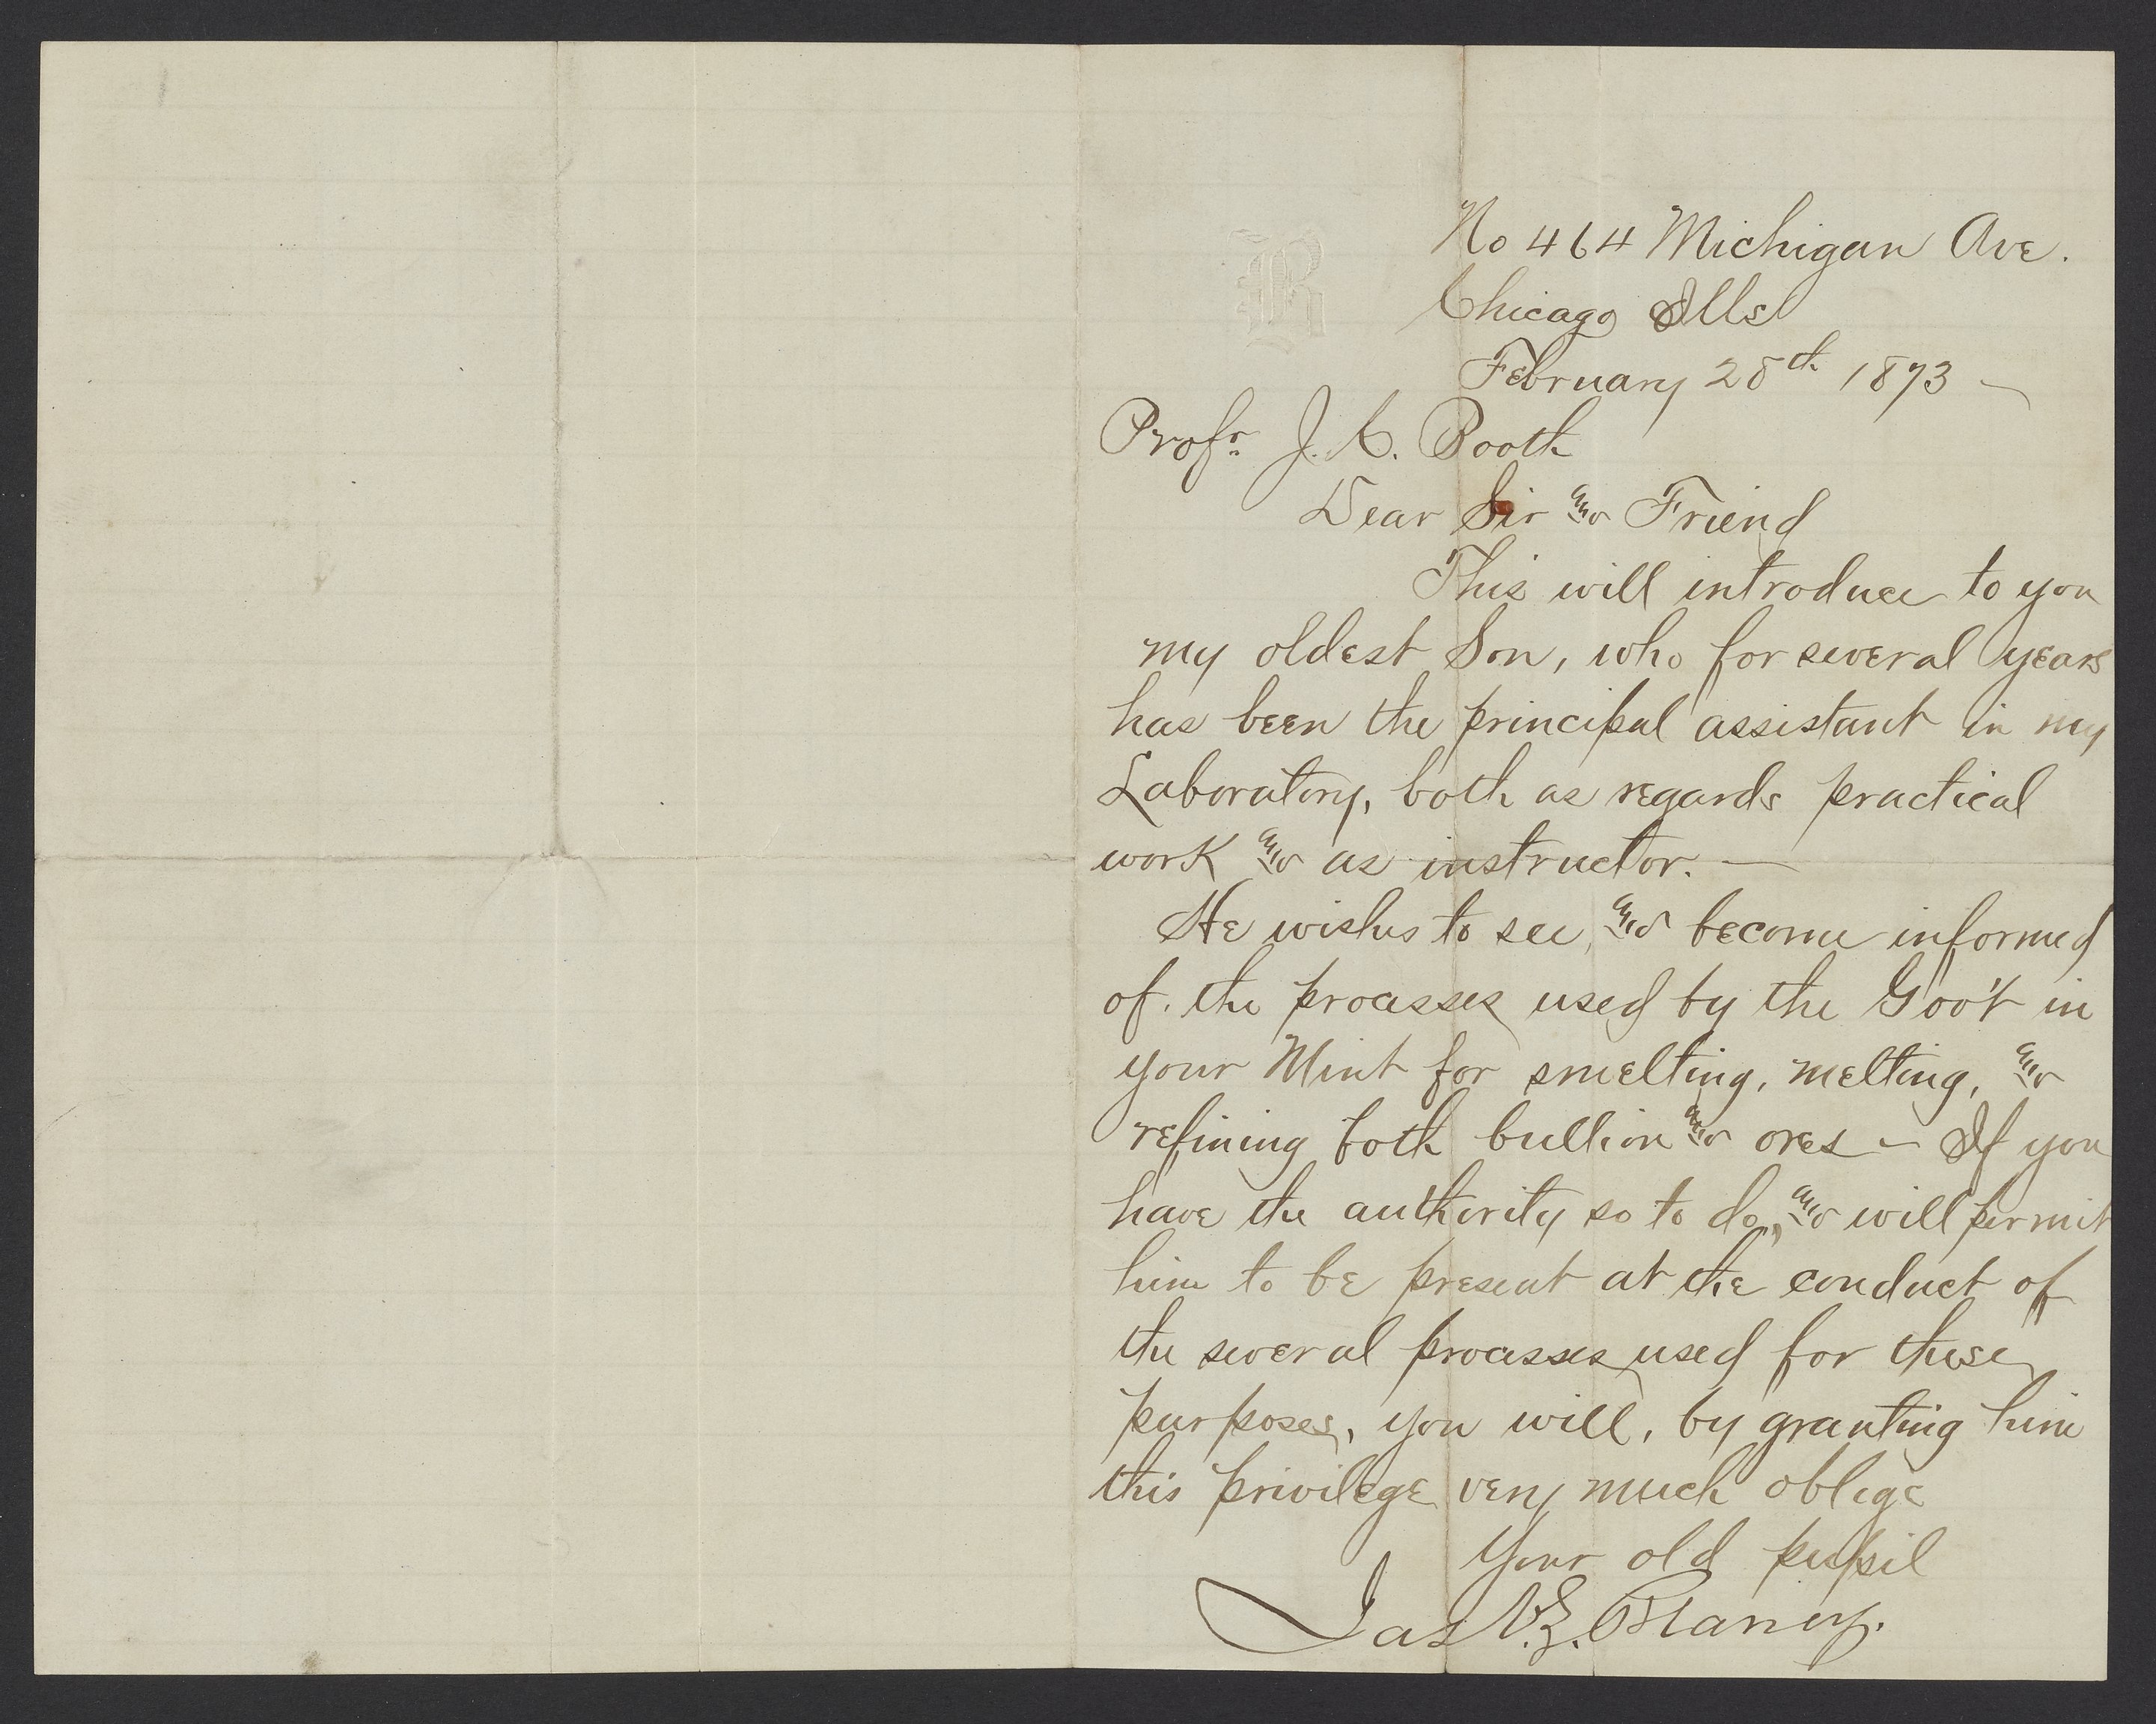 R
No 464 Michigan Ave.
Chicago Ills
February 28th 1873 —
Profr. J. C. Booth
Dear Sir and Friend
This will introduce to you
my oldest Son, who for several years
has been the principal assistant in my
Laboratory, both as regards practical
work and as instructor. —
He wishes to see, and become informed
of the processes used by the Gov't in
your Mint for smelting, melting, and
refining both bullion and ores — If you
have the authority so to do, and will permit
him to be present at the conduct of
the several processes used for these
purposes, you will, by granting him
this privilege very much oblige
Your old pupil
Jas V.Z. Blaney.